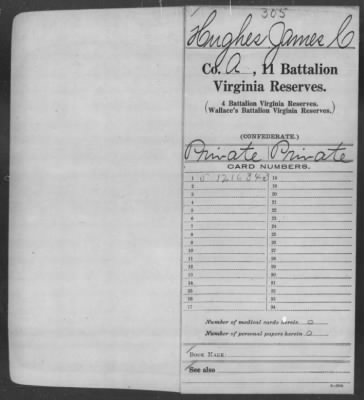 305
Hughes, James C
Co. A, 11 Battalion
Virginia Reserves.
4 Battalion Virginia Reserves.
(Wallace's Battalion Virginia Reserves.)
(CONFEDERATE.)
Private | Private
CARD NUMBERS.
1 18
2 19
3 20
4 21
5 22
6 23
7 24
8 25
9 26
10 27
11 28
12 29
13 30
14 31
15 32
16 33
17 34
Number of medical cards herein 0
Number of personal papers herein 0
BOOK MARK:
See also